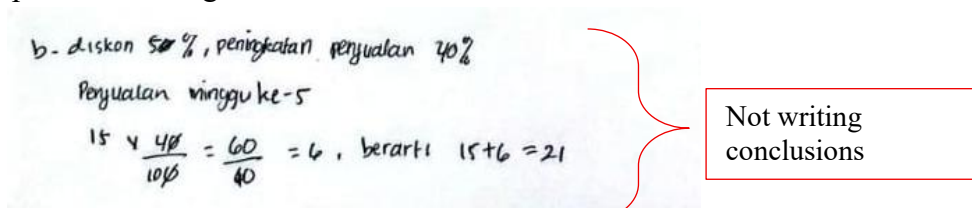 b- diskon 50%, peningkatan penjualan 40%
Penjualan minggu ke-5
15 x 40/100 = 60/10 = 6, berarti 15+6 = 21
Not writing
conclusions